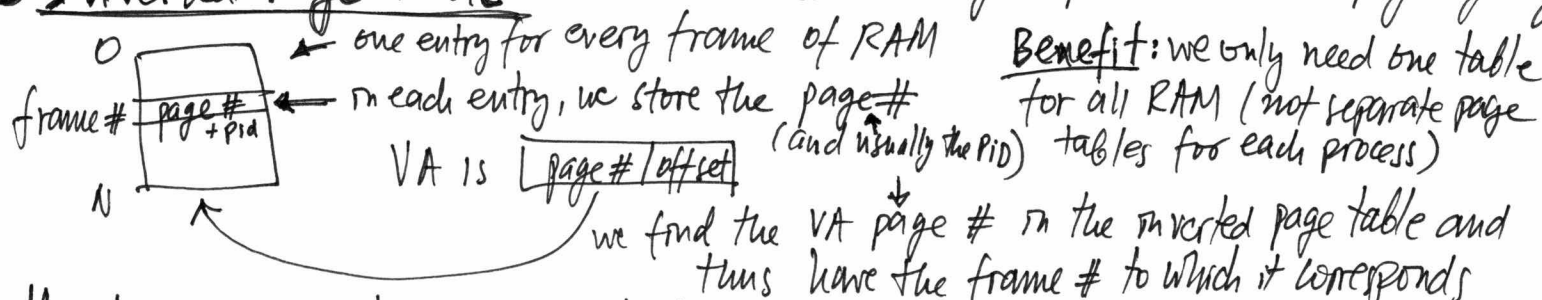 Inverted Page
0
one entry for every frame of RAM
frame #
page #
+ pid
in each entry, we store the page #
(and usually the PID)
N
VA is page # | offset
we find the VA page # in the inverted page table and
thus have the frame # to which it corresponds
Benefit: we only need one table
for all RAM (not separate page
tables for each process)